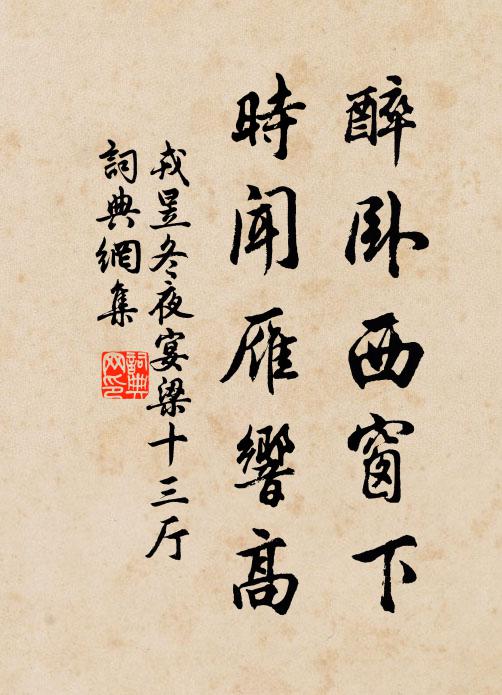 醉卧西窗下
時聞雁響高
戎昱冬夜宴梁十三厅
詞典網集
詞典网印